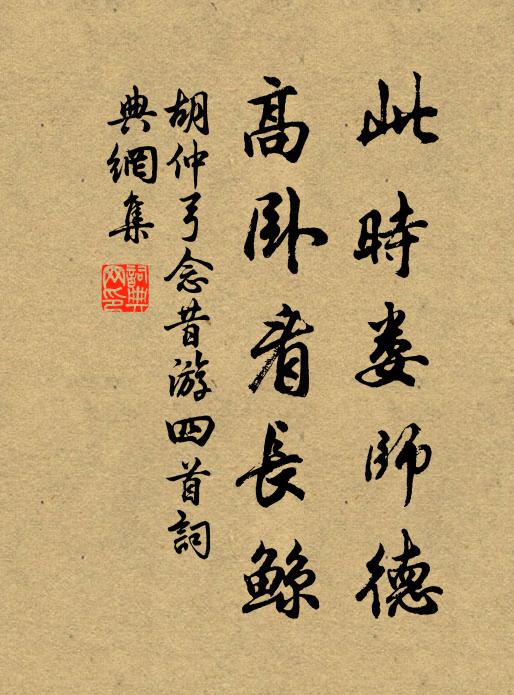 此時娄師德
高卧看長鯨
胡仲弓念昔游四首詞
典網集
詞典網印